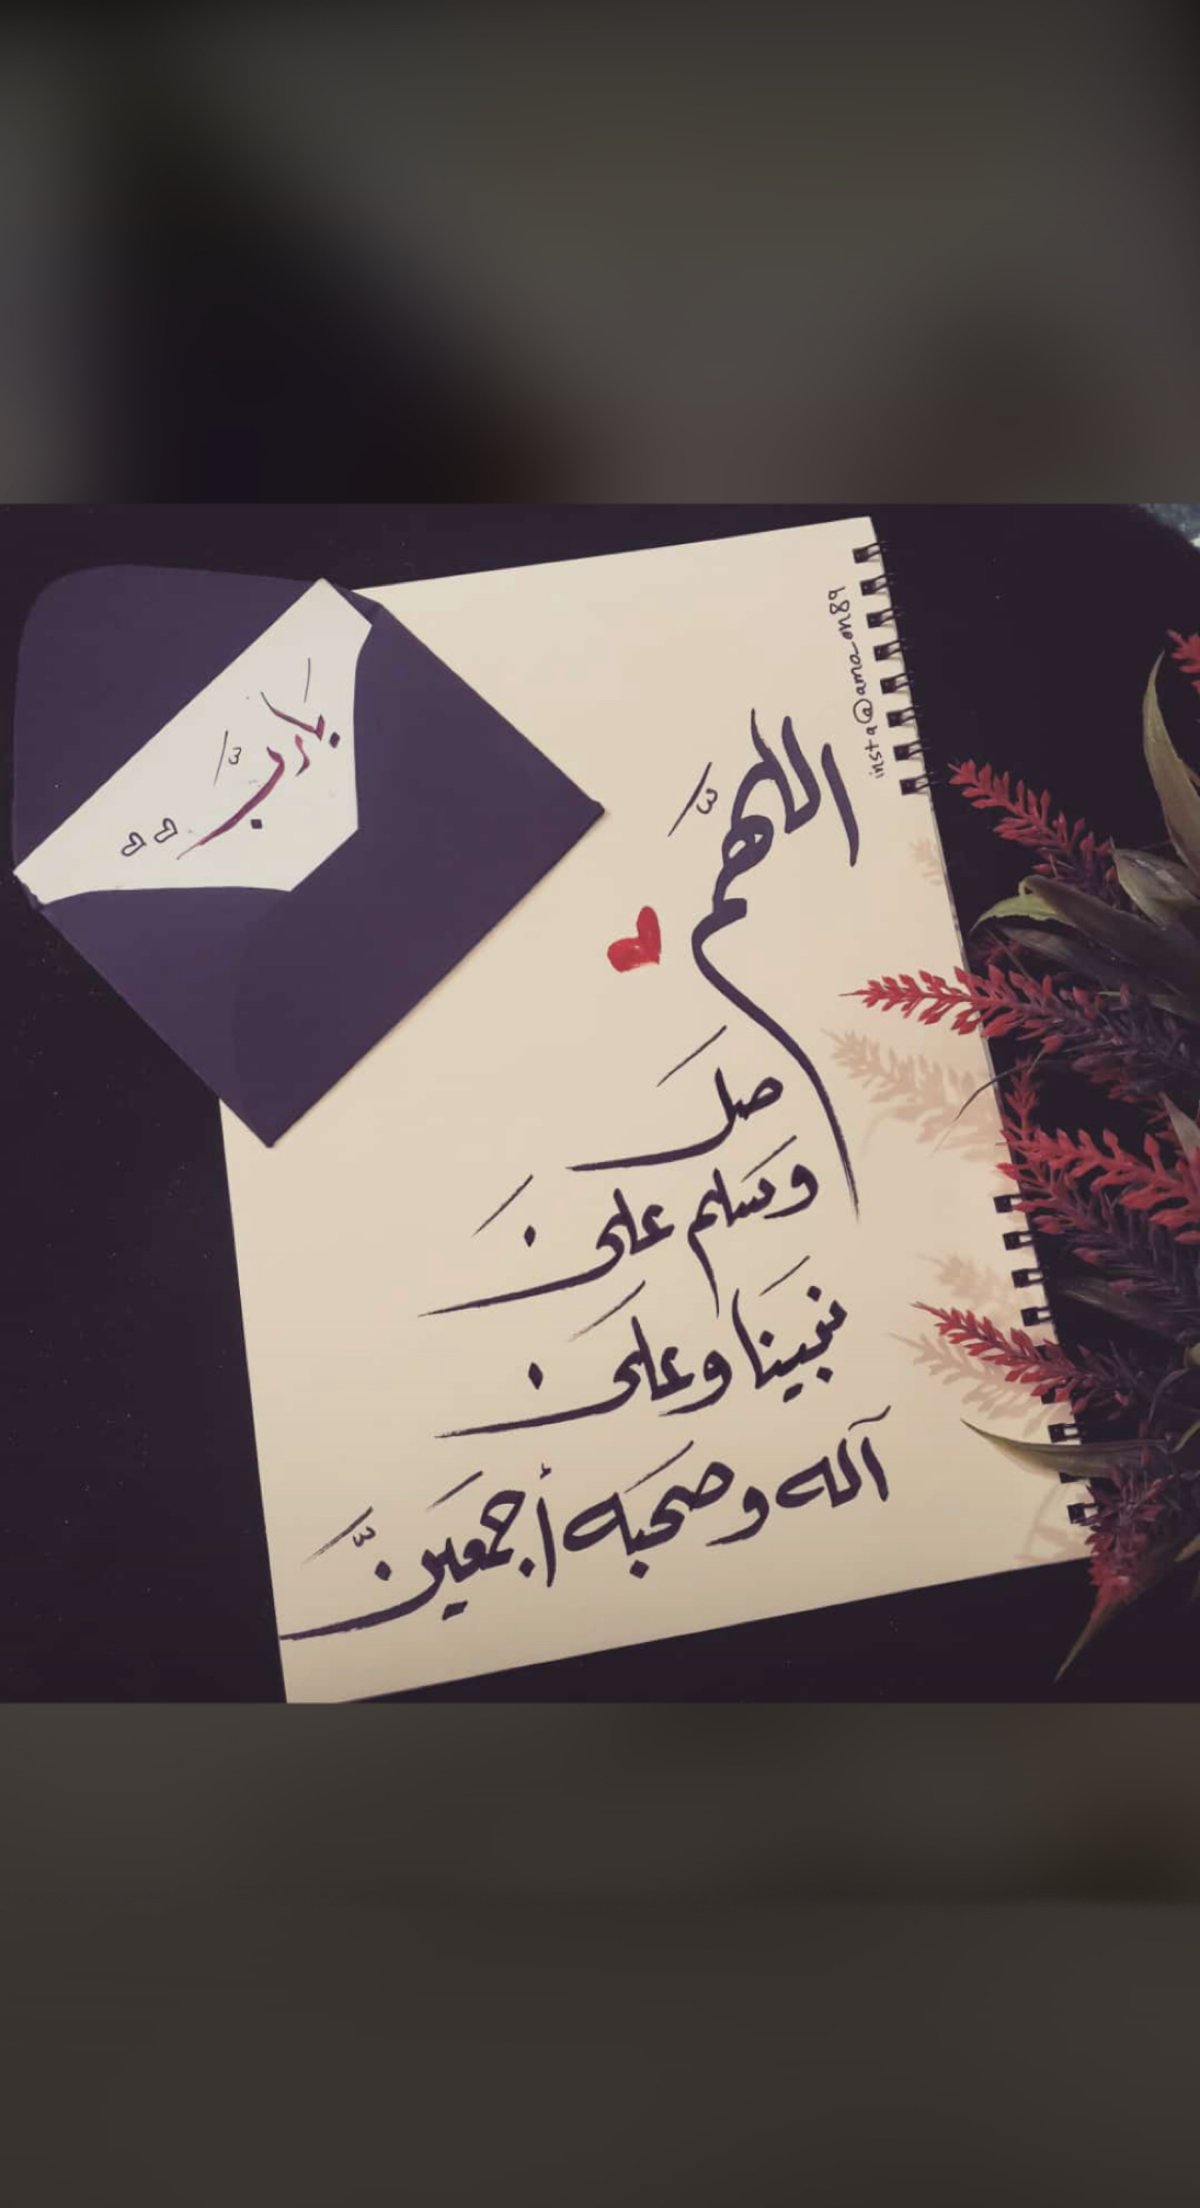 يارب
insta@ama_on89
اللهم
صل
وسلم على
نبينا وعلى
آله وصحبه أجمعين